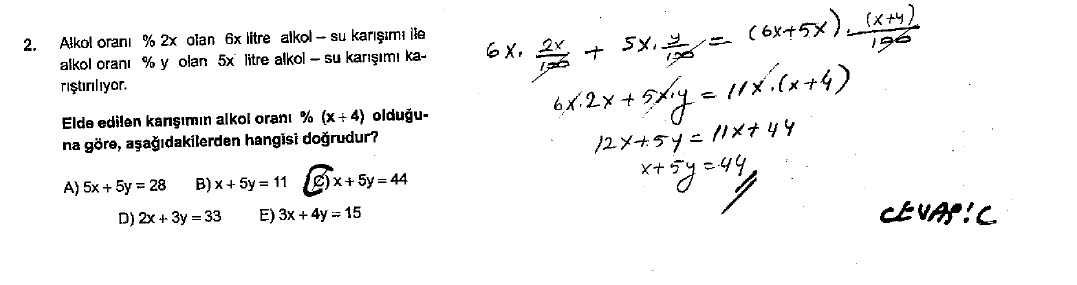 2. Alkol oranı % 2x olan 6x litre alkol – su karışımı ile
alkol oranı % y olan 5x litre alkol – su karışımı ka-
rıştırılıyor.
Elde edilen karışımın alkol oranı % (x + 4) olduğu-
na göre, aşağıdakilerden hangisi doğrudur?
A) 5x + 5y = 28 B) x + 5y = 11 C) x + 5y = 44
D) 2x + 3y = 33 E) 3x + 4y = 15
6x. 2x/100 + 5x. y/100 = (6x+5x). (x+4)/100
6x.2x + 5x.y = 11x.(x+4)
12x+5y = 11x+44
x+5y=44
CEVAP: C